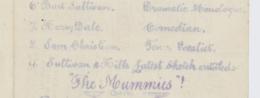 6 Burt Sullivan. Dramatic Monologue.
7. Harry Dale. Comedian.
8. Sam Christian.
4. Sullivan & Mills Latest Sketch entitled
"The Mummies"!